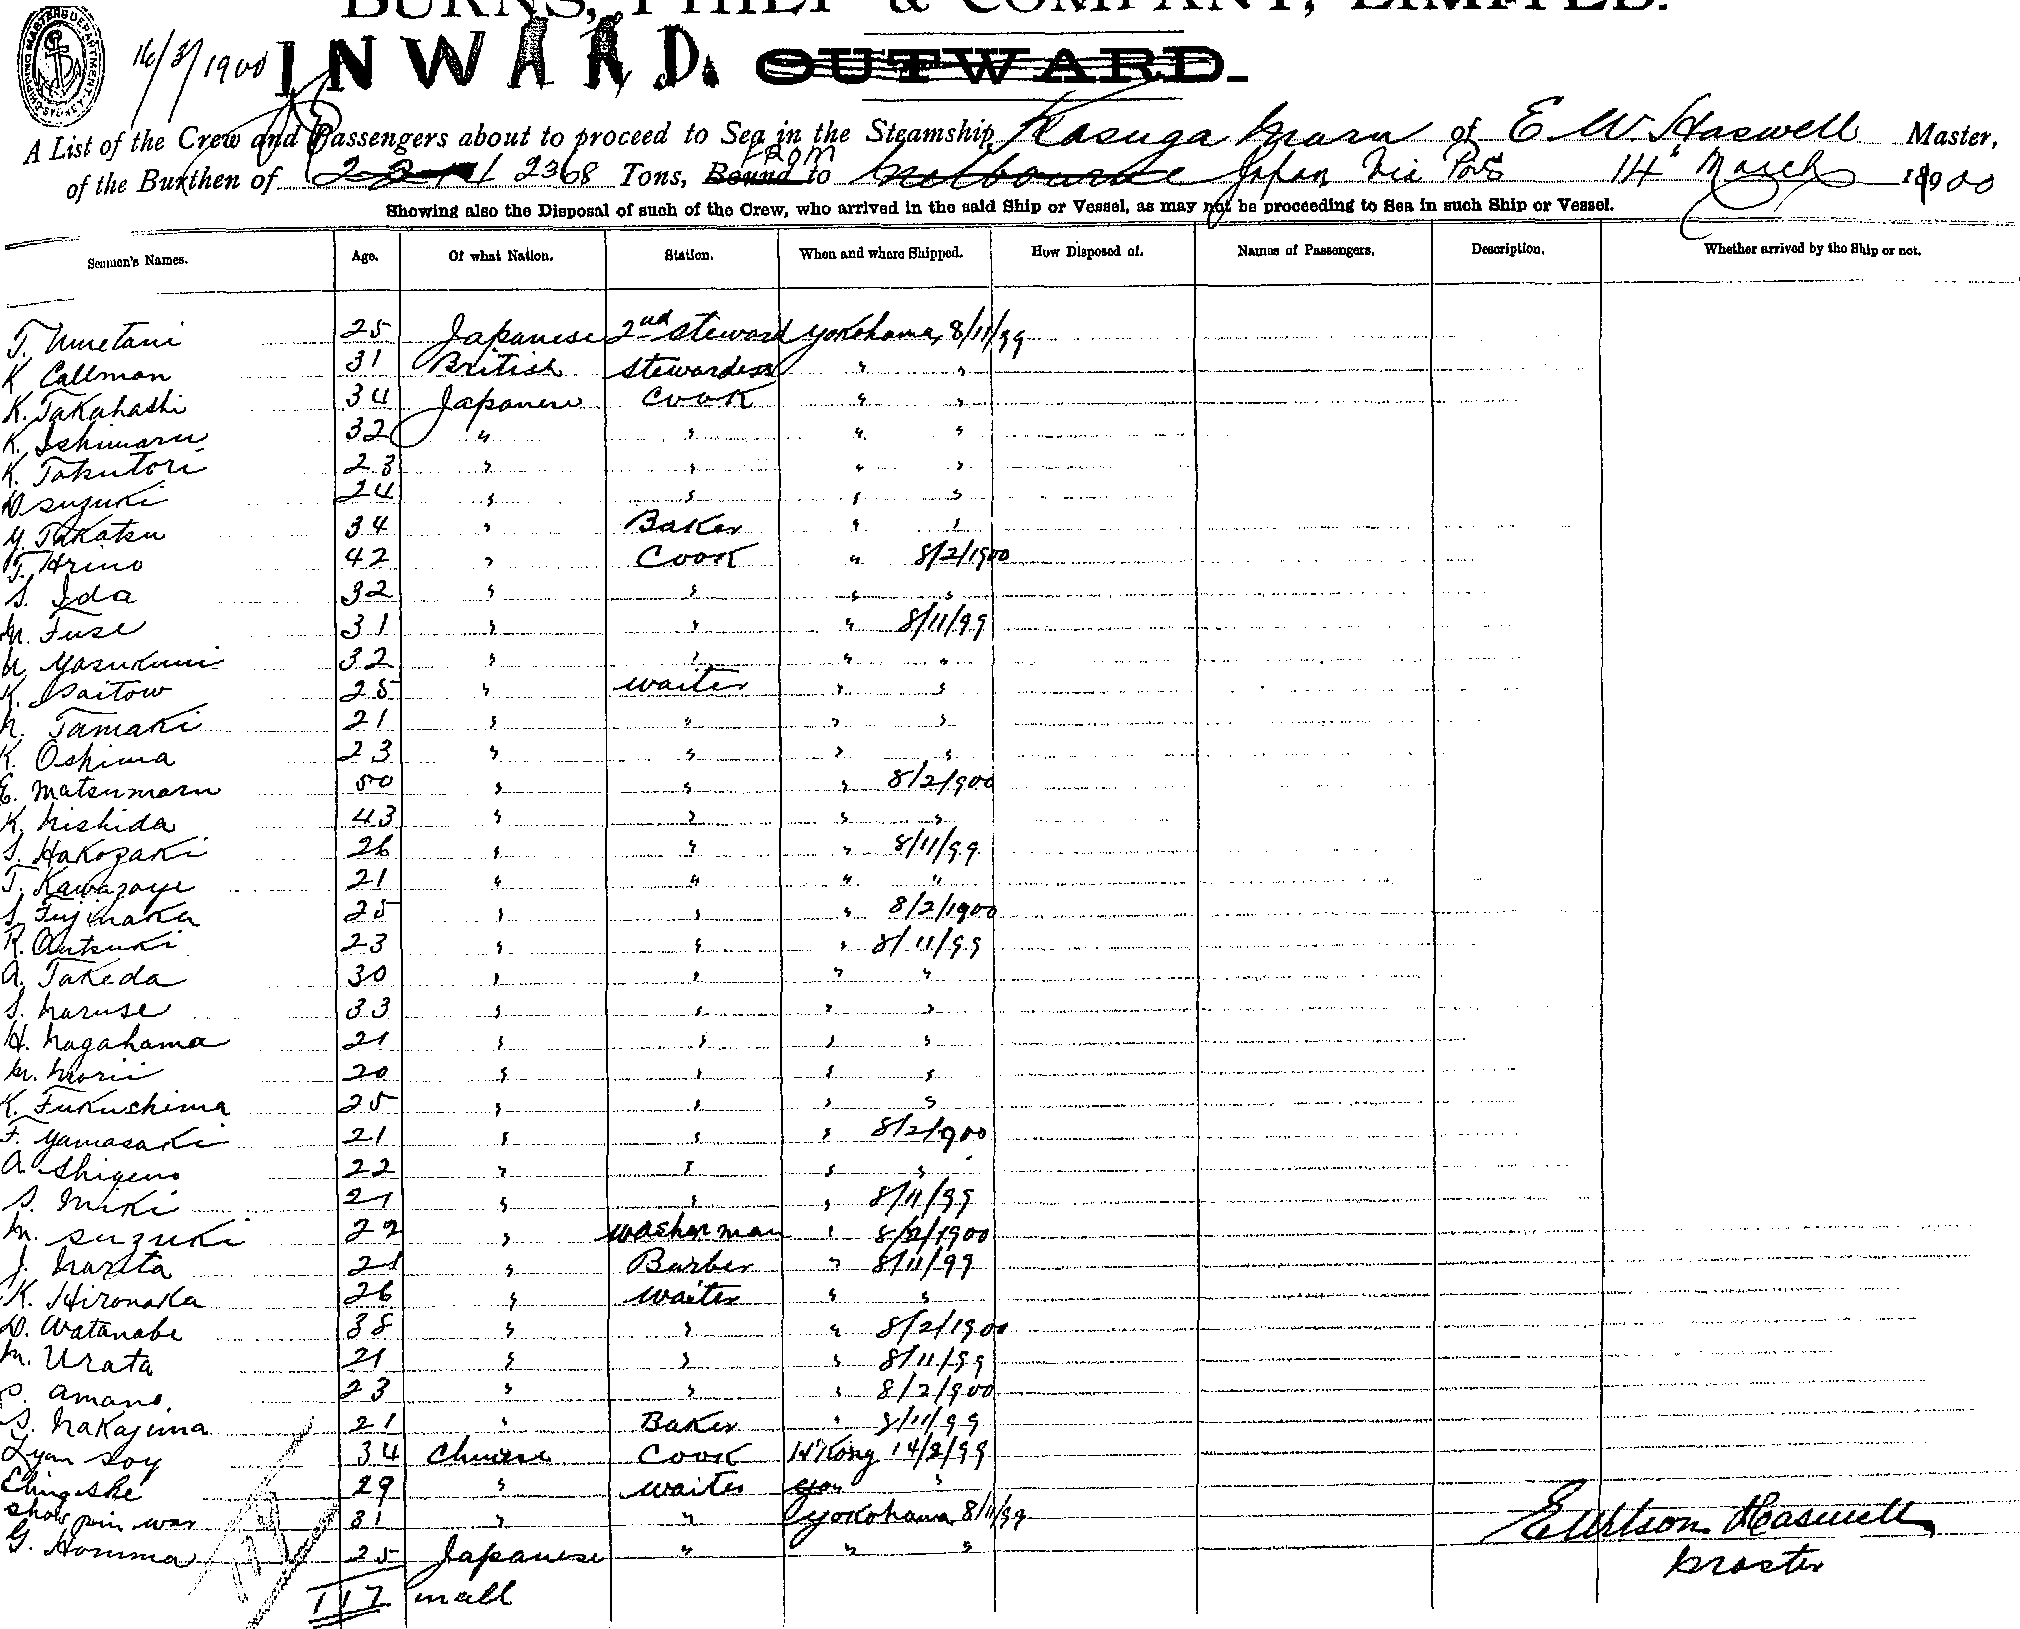 BURNS, PHILP & COMPANY, LIMITED.
16/3/1900 INWARD. OUTWARD.
A List of the Crew and Passengers about to proceed to Sea in the Steamship Kasuga Maru of E W. Haswell Master,
of the Burthen of 2368 Tons, Bound to from Melbourne Japan Via Ports 14" March 1900
Showing also the Disposal of such of the Crew, who arrived in the said Ship or Vessel, as may not be proceeding to Sea in such Ship or Vessel.
Seamen's Names. Age. Of what Nation. Station. When and where Shipped. How Disposed of. Names of Passengers. Description. Whether arrived by the Ship or not.
T. Umetani 25 Japanese 2nd steward Yokohama 8/11/99
K Callman 31 British stewardess " "
K. Takahashi 34 Japanese Cook " "
K. Ishimaru 32 " " " "
K. Tokutori 23 " " " "
D Suzuki 24 " " " "
Y. Takatsu 34 " Baker " "
T. Hrino 42 " Cook " 8/2/1900
S. Ida 32 " " " "
M. Fuse 31 " " " 8/11/99
U Yasukuni 32 " " " "
K. Saitow 25 " waiter " "
N. Tamaki 21 " " " "
K. Oshima 23 " " " "
E. Matsumaru 50 " " " 8/2/900
K. Nishida 43 " " " "
S. Hakozaki 26 " " " 8/11/99
T. Kawazoye 21 " " " "
S. Fujinaka 25 " " " 8/2/1900
R. Outsuki 23 " " " 8/11/99
A. Takeda 30 " " " "
S. Naruse 33 " " " "
H. Nagahama 21 " " " "
M. Morii 20 " " " "
K. Fukushima 25 " " " "
F. Yamasaki 21 " " " 8/2/900
A. Shigeno 22 " " " "
S. Miki 21 " " " 8/11/99
M. Suzuki 22 " washerman " 8/2/1900
J. Narita 21 " Barber " 8/11/99
K. Hironaka 26 " waiter " "
D. Watanabe 38 " " " 8/2/1900
M. Urata 21 " " " 8/11/99
S. Amano. 23 " " " 8/2/900
S. Nakajima 21 " Baker " 8/11/99
Lyan Soy 34 Chinese Cook H'Kong 14/8/99
Ching She 29 " waiter "
Show pin war 31 " " Yokohama 8/11/99
G. Homma 25 Japanese " " "
117 in all
E Wilson Haswell
Master